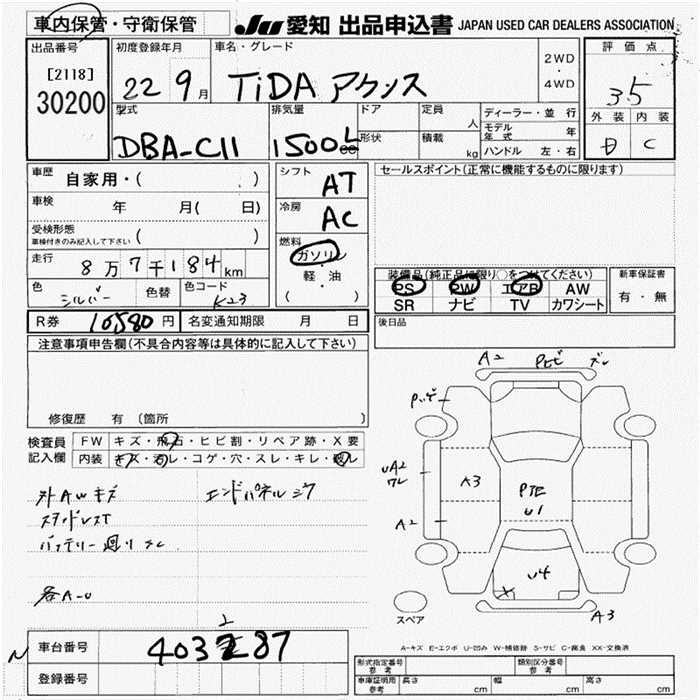 車内保管・守衛保管
JU 愛知 出品申込書 JAPAN USED CAR DEALERS ASSOCIATION
出品番号
[2118]
30200
初度登録年月
22 9月
車名・グレード
TiDA
2WD
・
4WD
評価点
3.5
外装 内装
C
型式
DBA-C11
排気量
1500 cc
ドア
形状
定員
人
積載
kg
ディーラー・並行
モデル年式 年
ハンドル 左・右
車歴
自家用・( )
車検 年 月( 日)
受検形態
車検付きのみ記入して下さい ( )
走行
8万7千184km
色 シルバー
色替
色コード K23
シフト
AT
冷房
AC
燃料
ガソリン
軽・油
( )
セールスポイント(正常に機能するものに限ります)
装備品(純正品に限り〇をつけてください)
PS PW エアB AW
SR ナビ TV カワシート
新車保証書
有・無
R券 10,580円
名変通知期限 月 日
後日品
注意事項申告欄(不具合内容等は具体的に記入して下さい)
修復歴 有 (箇所 )
検査員
記入欄
FW キズ・飛石・ヒビ割・リペア跡・X要
内装 キズ・汚レ・コゲ・穴・スレ・キレ・破レ
外AWキズ
スタッドレスT
各A-U
A2
A3
A2
A3
U1
U4
スペア
A-キズ E-エクボ U-凹み W-補修跡 S-サビ C-腐食 XX-交換済
車台番号
403287
2
N
登録番号
形式指定番号
参考
類別区分番号
参考
車庫証明用
参考
長さ cm
幅 cm
高さ cm